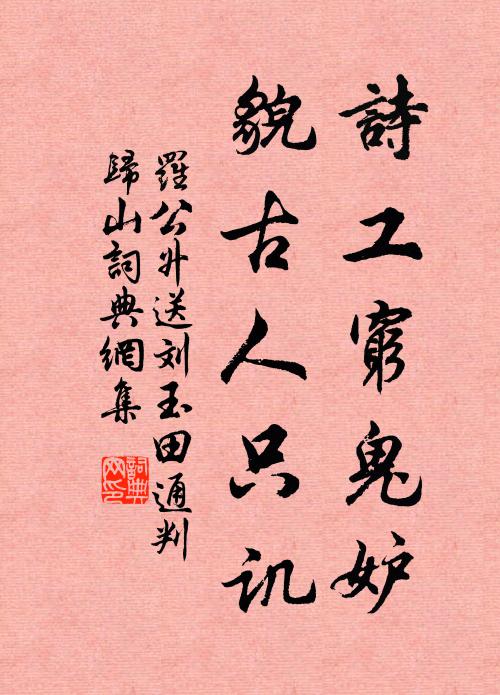 詩工窮鬼妒
貌古人只訊
羅公升送刘玉田通判
歸山詞典網集
詞典网印